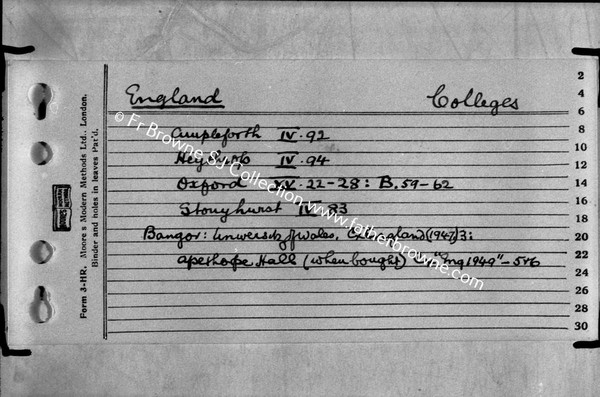 England Colleges
Ampleforth IV. 92
Heythrop IV. 94
Oxford IV. 22-28: B. 59-62
Stonyhurst IV. 83
Bangor: University of Wales. England (1947) 3:
Hall (when bought) "Eng 1949" - 5+6
© Fr Browne SJ Collection www.fatherbrowne.com
Form 3-HR. Moore's Modern Methods Ltd., London.
Binder and holes in leaves Pat'd.
2
4
6
8
10
12
14
16
18
20
22
24
26
28
30